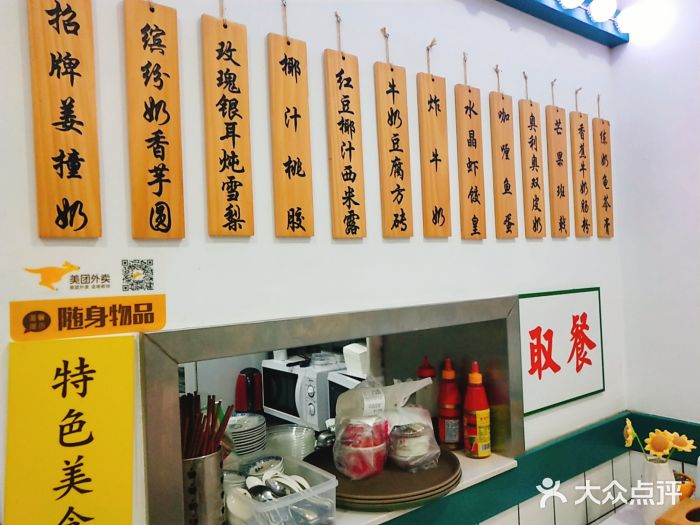 招牌姜撞奶
缤纷奶香芋圆
玫瑰银耳炖雪梨
椰汁桃胶
红豆椰汁西米露
牛奶豆腐方砖
炸牛奶
水晶虾饺皇
咖喱鱼蛋
奥利奥双皮奶
芒果班戟
香蕉牛奶肠粉
炼奶龟苓膏
美团外卖
美团外卖 送啥都快
随身物品
特色美食
取餐
大众点评